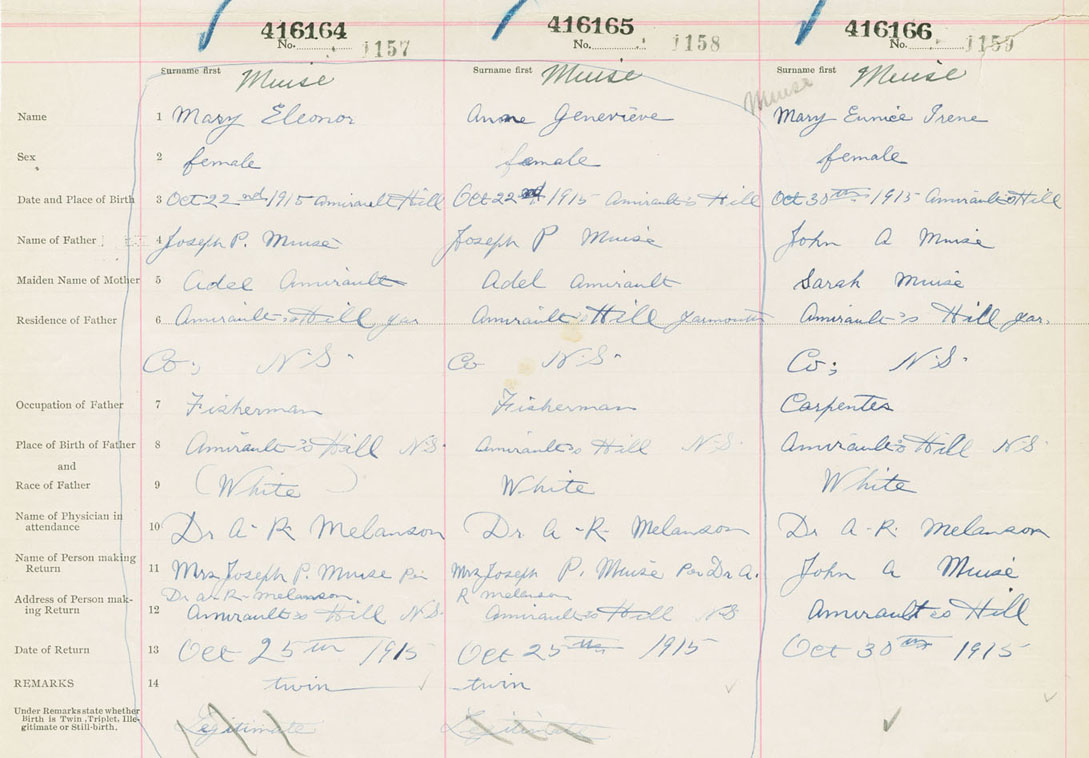 416164 416165 416166
No. 1157 No. 1158 No. 1159
Surname first Muise Surname first Muise Surname first Muise
Muise
Name 1 Mary Eleonor Anne Geneviève Mary Eunice Irene
Sex 2 female female female
Date and Place of Birth 3 Oct 22nd 1915 Amirault Hill Oct 22nd 1915 Amirault's Hill Oct 30th 1915 Amirault's Hill
Name of Father 4 Joseph P. Muise Joseph P Muise John A Muise
Maiden Name of Mother 5 Adel Amirault Adel Amirault Sarah Muise
Residence of Father 6 Amirault's Hill Yar Amirault's Hill Yarmouth Amirault's Hill Yar.
Co; N.S. Co N.S. Co; N.S.
Occupation of Father 7 Fisherman Fisherman Carpenter
Place of Birth of Father 8 Amirault's Hill N.S. Amirault's Hill N.S. Amirault's Hill N.S
and
Race of Father 9 (White) White White
Name of Physician in
attendance 10 Dr A-R. Melanson Dr. A-R- Melanson Dr A-R. Melanson
Name of Person making
Return 11 Mrs Joseph P. Muise Per Mrs Joseph P. Muise Per Dr A. John A Muise
Dr A-R- Melanson R Melanson
Address of Person mak-
ing Return 12 Amirault's Hill N.S. Amirault's Hill N.S Amirault's Hill
Date of Return 13 Oct 25th 1915 Oct 25th 1915 Oct 30th 1915
REMARKS 14 twin twin
Under Remarks state whether
Birth is Twin, Triplet, Ille-
gitimate or Still-birth. Legitimate Legitimate